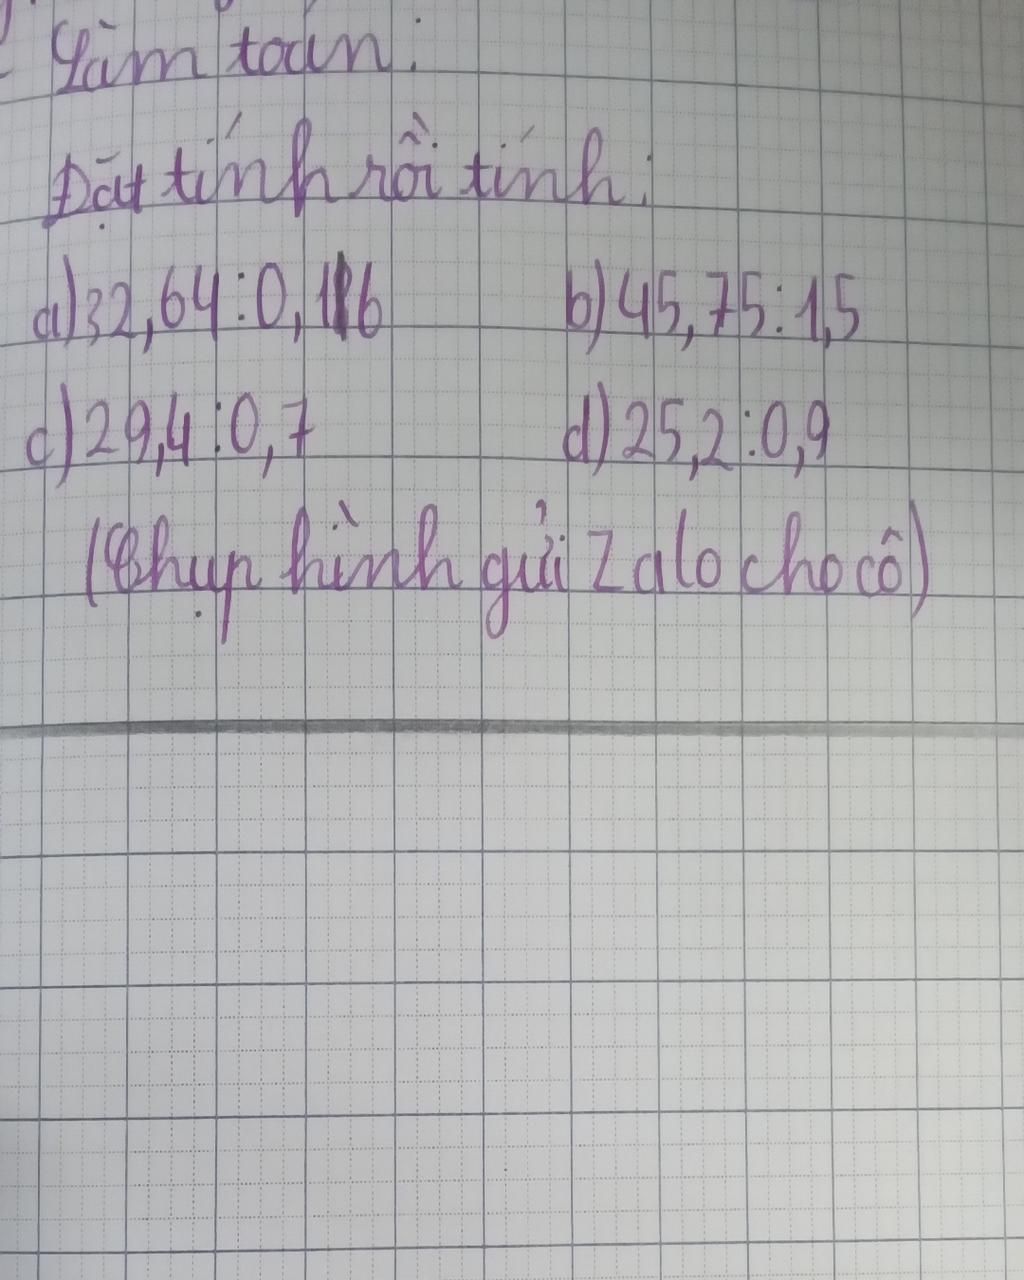 Làm toán:
Đặt tính rồi tính:
a) 32,64 : 0,16
b) 45,75 : 1,5
c) 29,4 : 0,7
d) 25,2 : 0,9
(Chụp hình gửi Zalo cho cô)